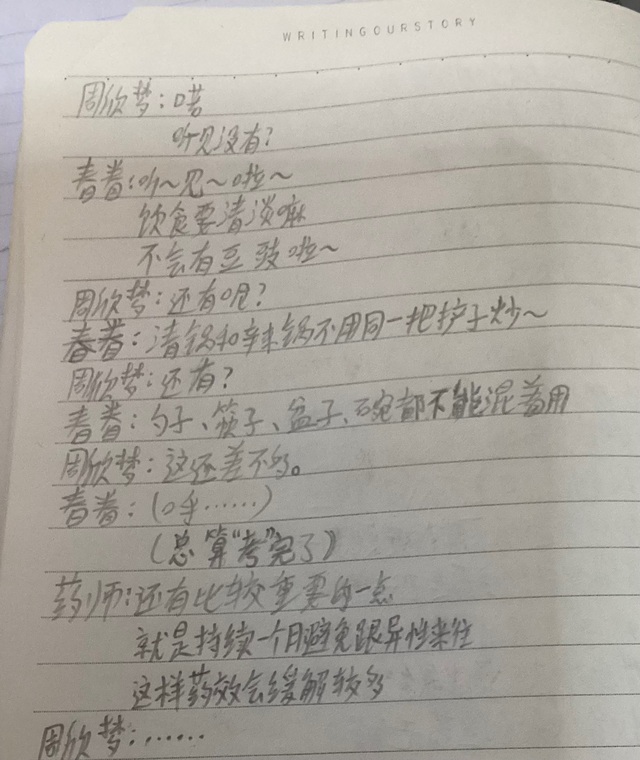 WRITINGOURSTORY
周欣梦:喏
听见没有?
春着:听~见~啦~
饮食要清淡嘛
不会有豆豉啦~
周欣梦:还有呢?
春着:清锅和辣锅不用同一把铲子炒~
周欣梦:还有?
春着:勺子、筷子、盆子、碗都不能混着用
周欣梦:这还差不多。
春着:(呼……)
(总算“考”完了)
药师:还有比较重要的一点
就是持续一个月避免跟异性来往
这样药效会缓解较多
周欣梦:……